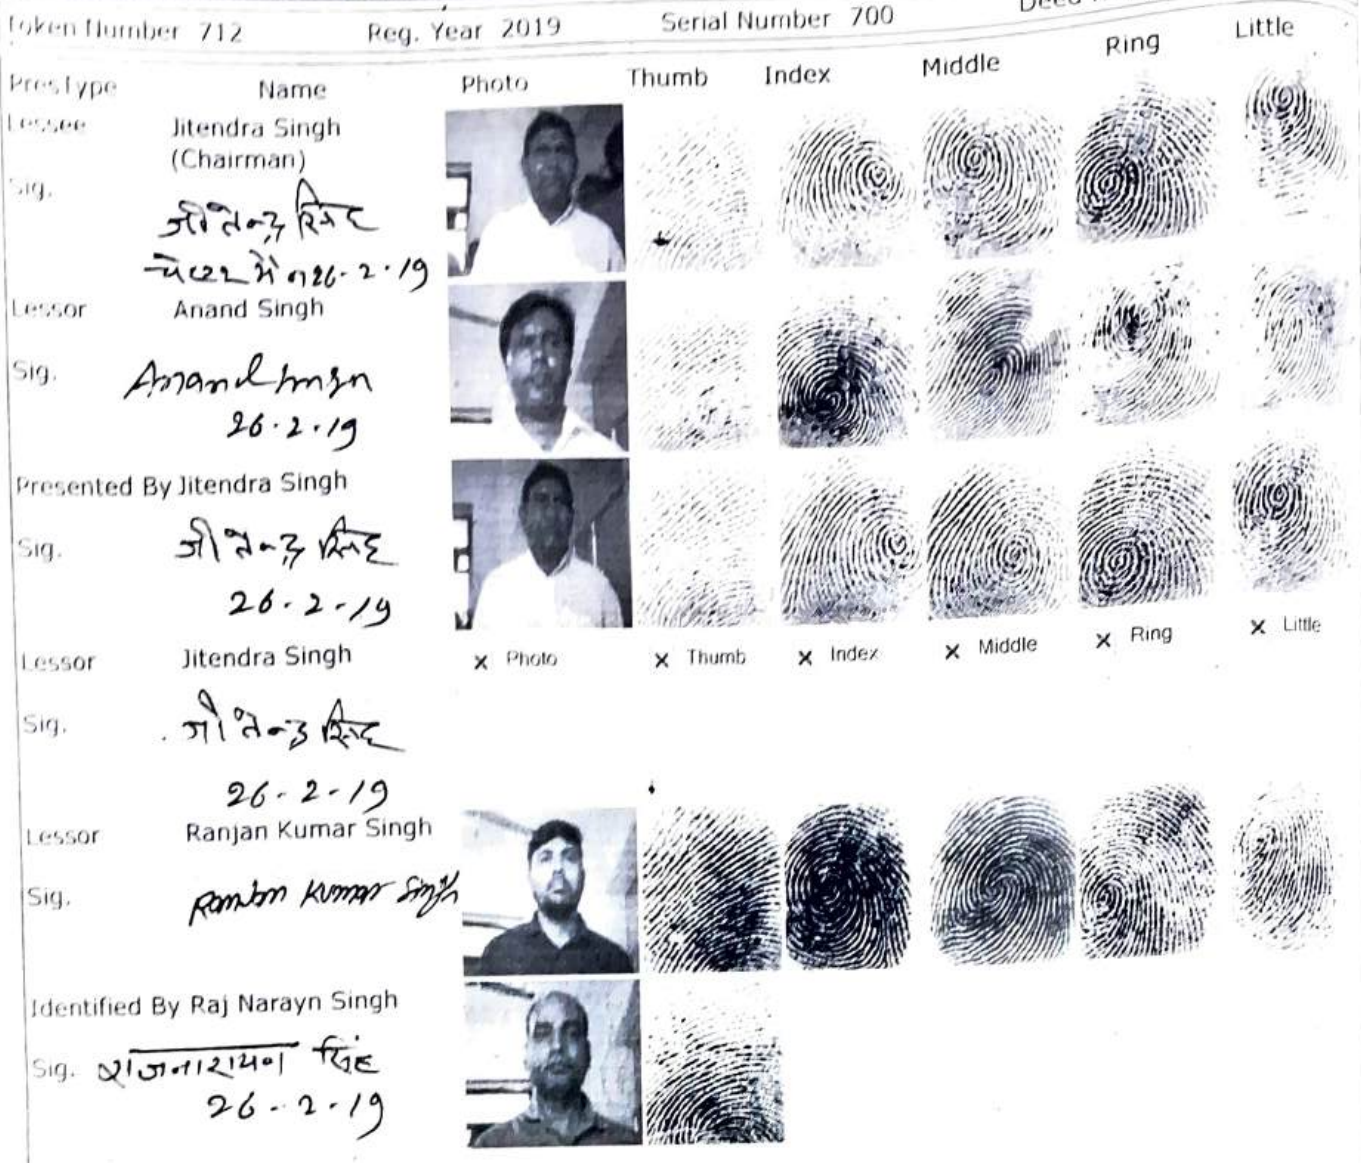 Token Number 712 Reg. Year 2019 Serial Number 700
PresType Name Photo Thumb Index Middle Ring Little
Lessee Jitendra Singh
(Chairman)
Sig.
जीतेन्द्र सिंह
26-2-19
Lessor Anand Singh
Sig. Anand Singh
26.2.19
Presented By Jitendra Singh
Sig. जीतेन्द्र सिंह
26-2-19
Lessor Jitendra Singh × Photo × Thumb × Index × Middle × Ring × Little
Sig. जीतेन्द्र सिंह
26-2-19
Lessor Ranjan Kumar Singh
Sig. Ranjan Kumar Singh
Identified By Raj Narayn Singh
Sig. राजनारायण सिंह
26-2-19